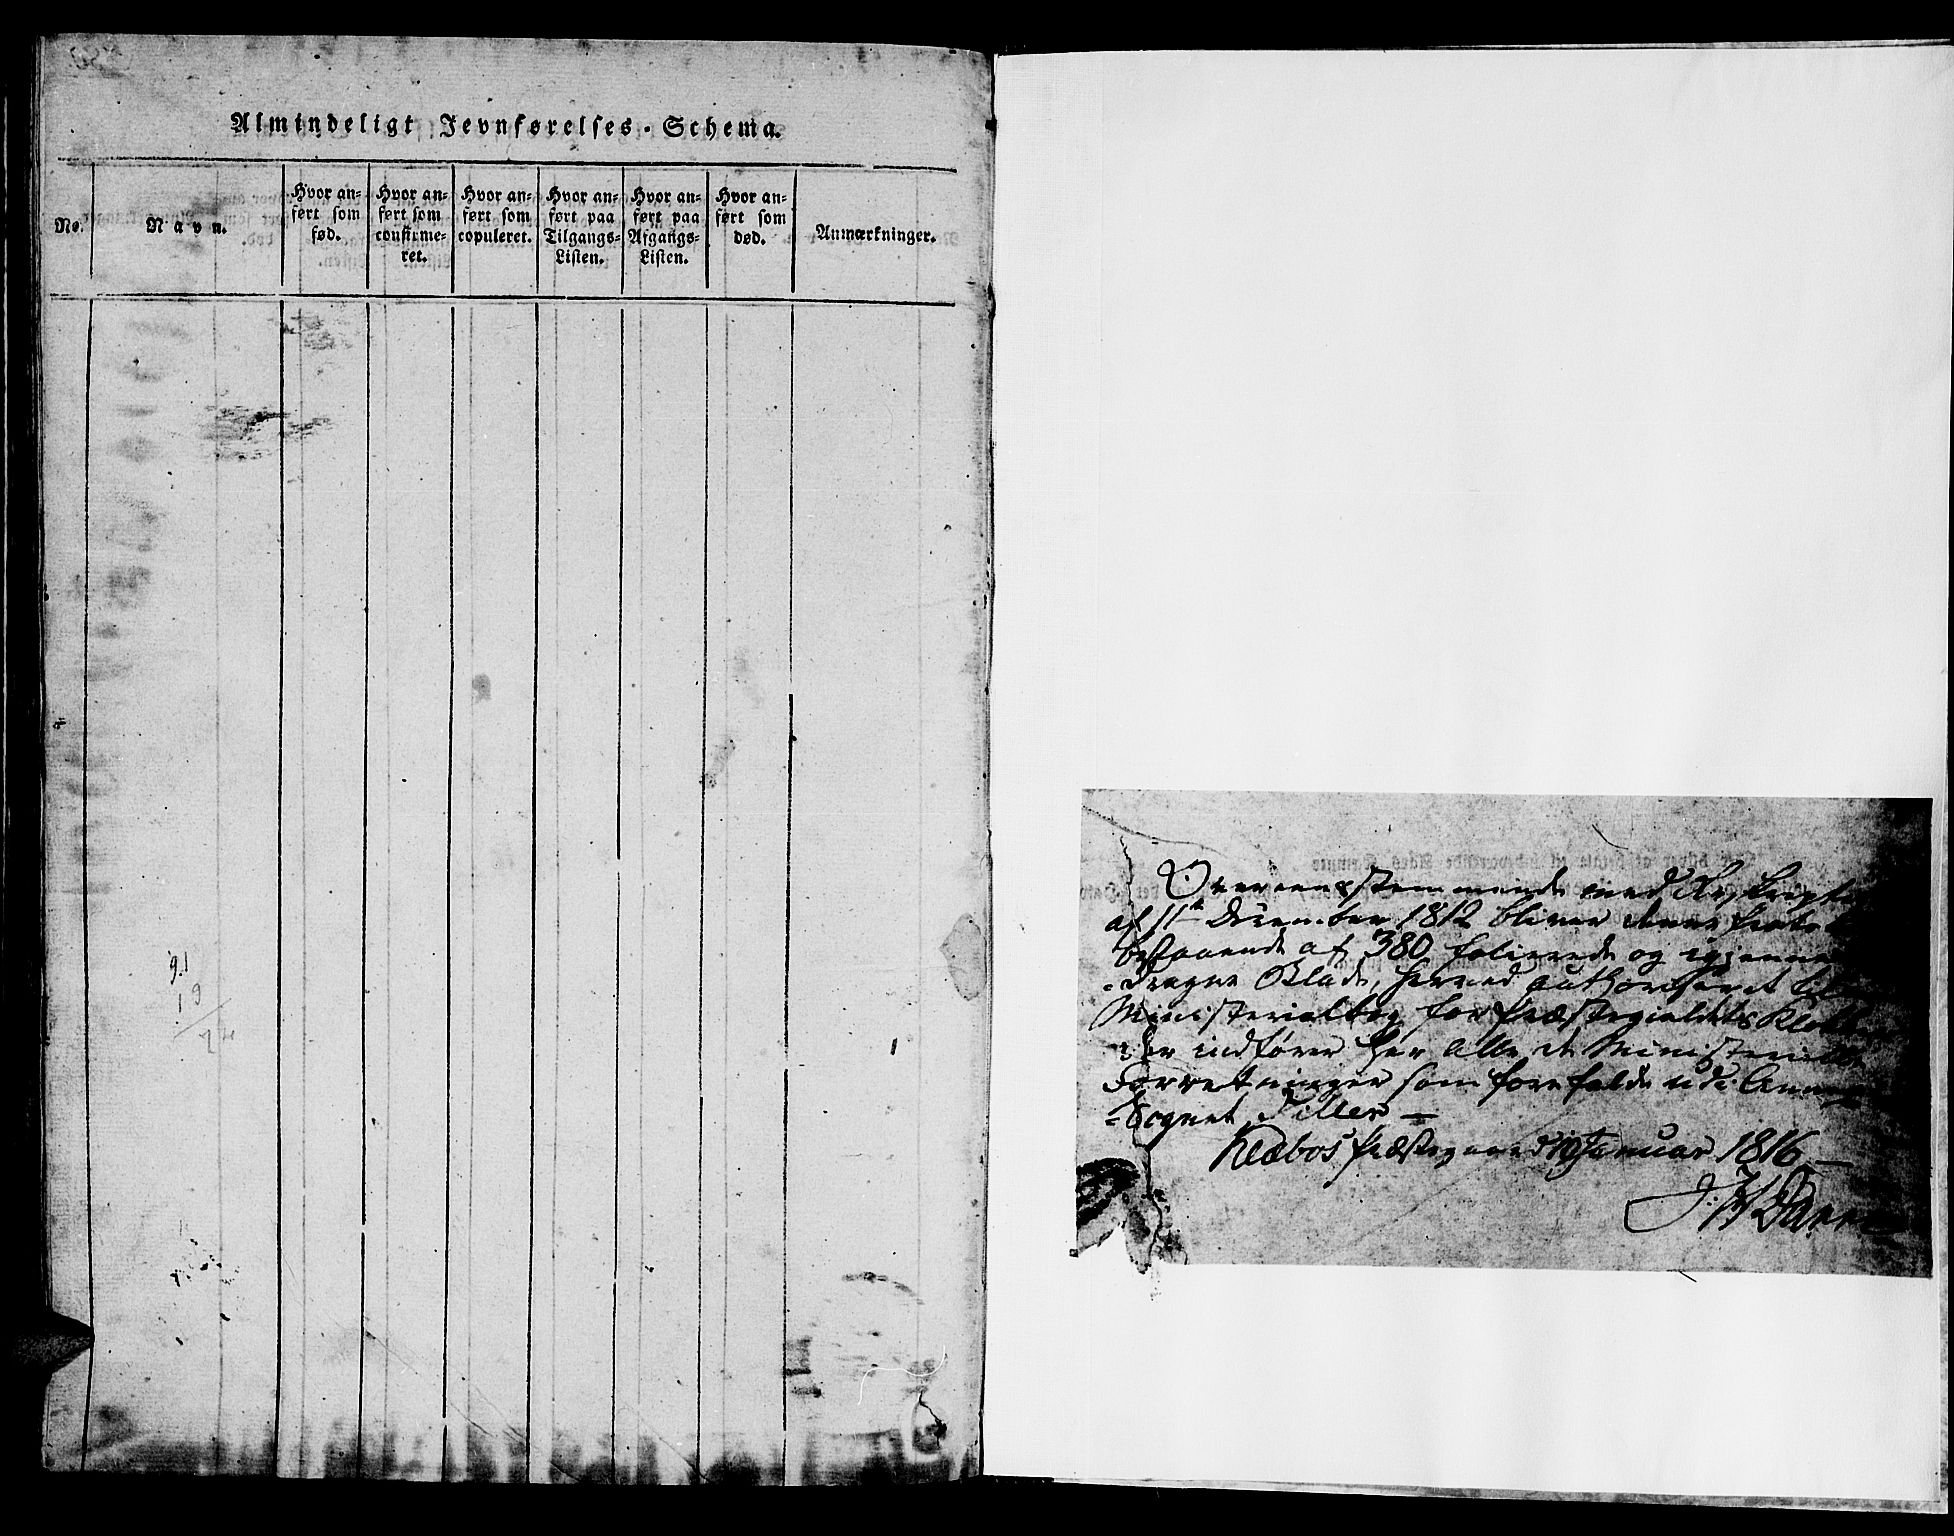 Almindeligt Jevnførelses-Schema.
No.
Navn.
Hvor an-
ført som
fød.
Hvor an-
ført som
confirme-
ret.
Hvor an-
ført som
copuleret.
Hvor an-
ført paa
Tilgangs-
Listen.
Hvor an-
ført paa
Afgangs-
Listen.
Hvor an-
ført som
død.
Anmærkninger.
91
19
Overeensstemmende med
af 11te December 1812 bliver denne
bestaaende af 380 folierede og
dragne Blade, herved authoriseret
Ministerialbog for Præstegieldets
der indfører her alle de Ministerielle
Forretninger som forefalde udi
Sognet Tiller —
Klæboe Præstegaard Januar 1816 —